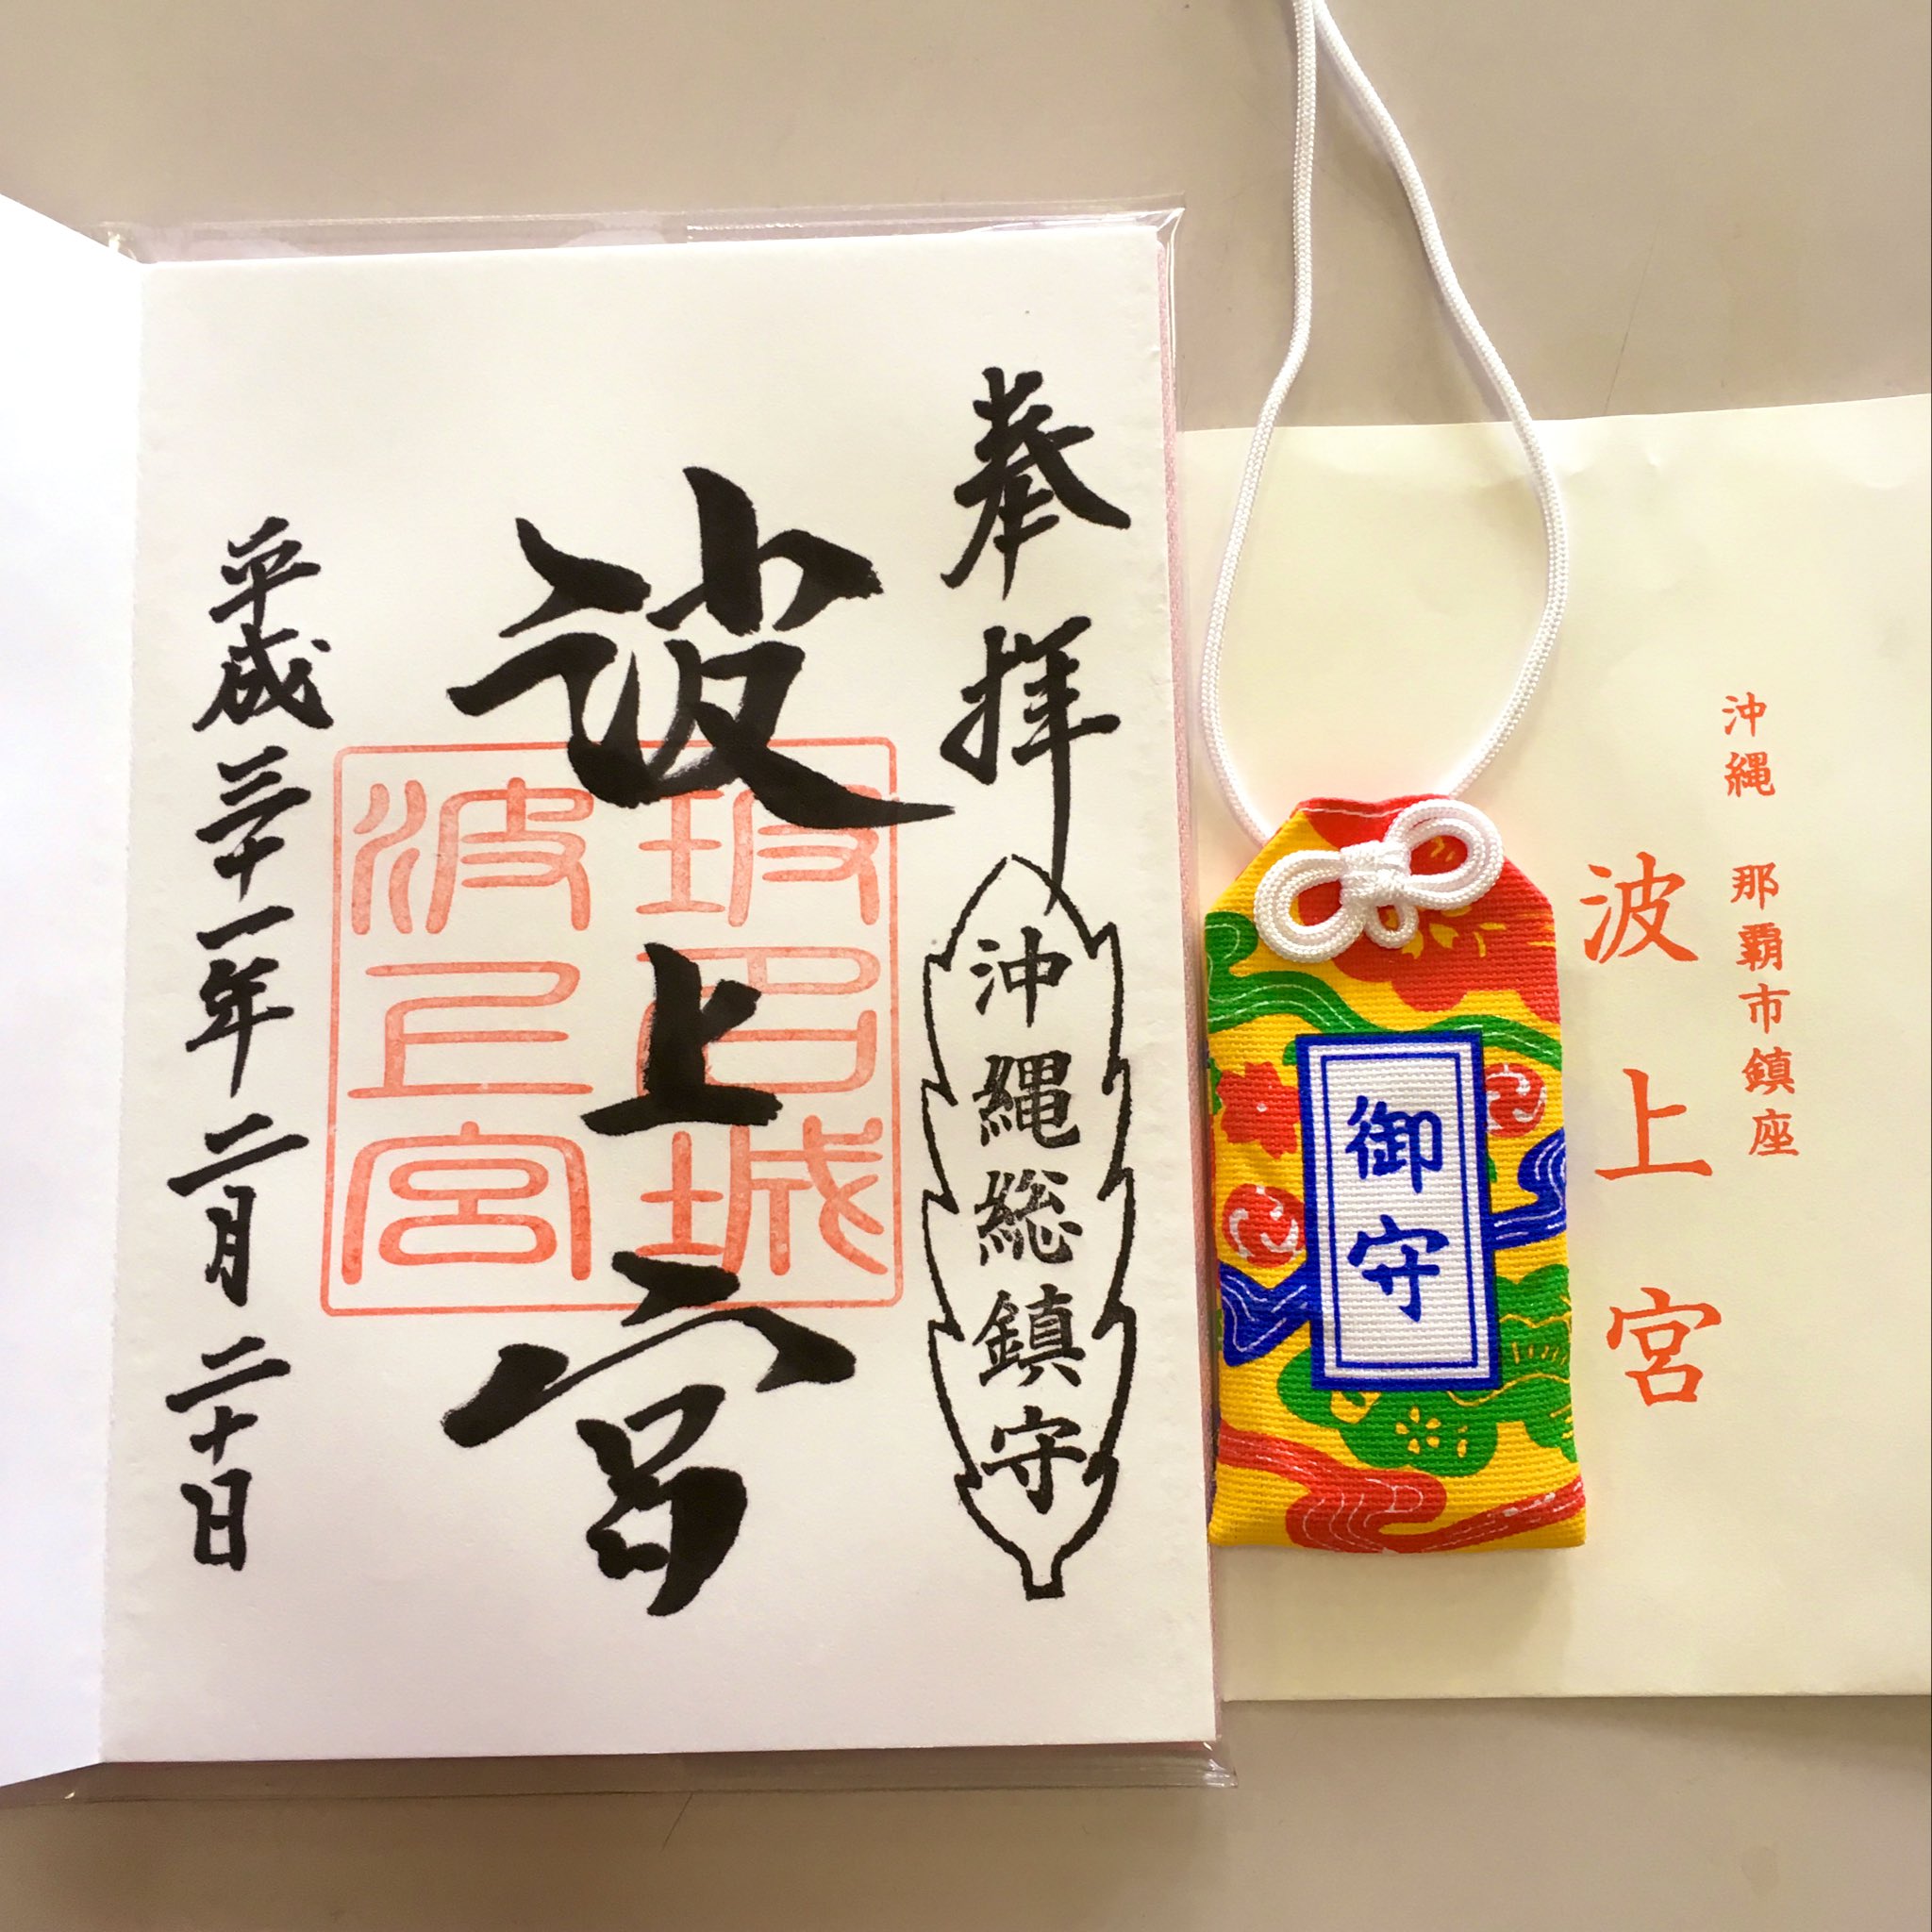 奉拝
沖縄総鎮守
波上宮
平成三十一年二月二十日
波上宮
御守
沖縄 那覇市鎮座
波上宮